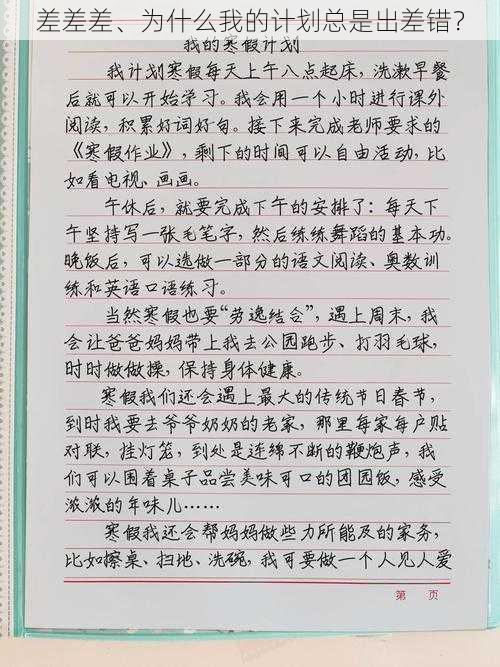 差差差、为什么我的计划总是出差错？
我的寒假计划
我计划寒假每天上午八点起床，洗漱早餐
后就可以开始学习。我会用一个小时进行课外
阅读，积累好词好句。接下来完成老师要求的
《寒假作业》，剩下的时间可以自由活动，比
如看电视、画画。
午休后，就要完成下午的安排了：每天下
午坚持写一张毛笔字，然后练练舞蹈的基本功。
晚饭后，可以选做一部分的语文阅读、奥数训
练和英语口语练习。
当然寒假也要“劳逸结合”，遇上周末，我
会让爸爸妈妈带上我去公园跑步、打羽毛球，
时时做做操，保持身体健康。
寒假我们还会遇上最大的传统节日春节，
到时我要去爷爷奶奶的老家，那里每家每户贴
对联，挂灯笼，到处是连绵不断的鞭炮声，我
们可以围着桌子品尝美味可口的团园饭，感受
浓浓的年味儿……
寒假我还会帮妈妈做些力所能及的家务，
比如擦桌、扫地、洗碗，我可要做一个人见人爱
第 页